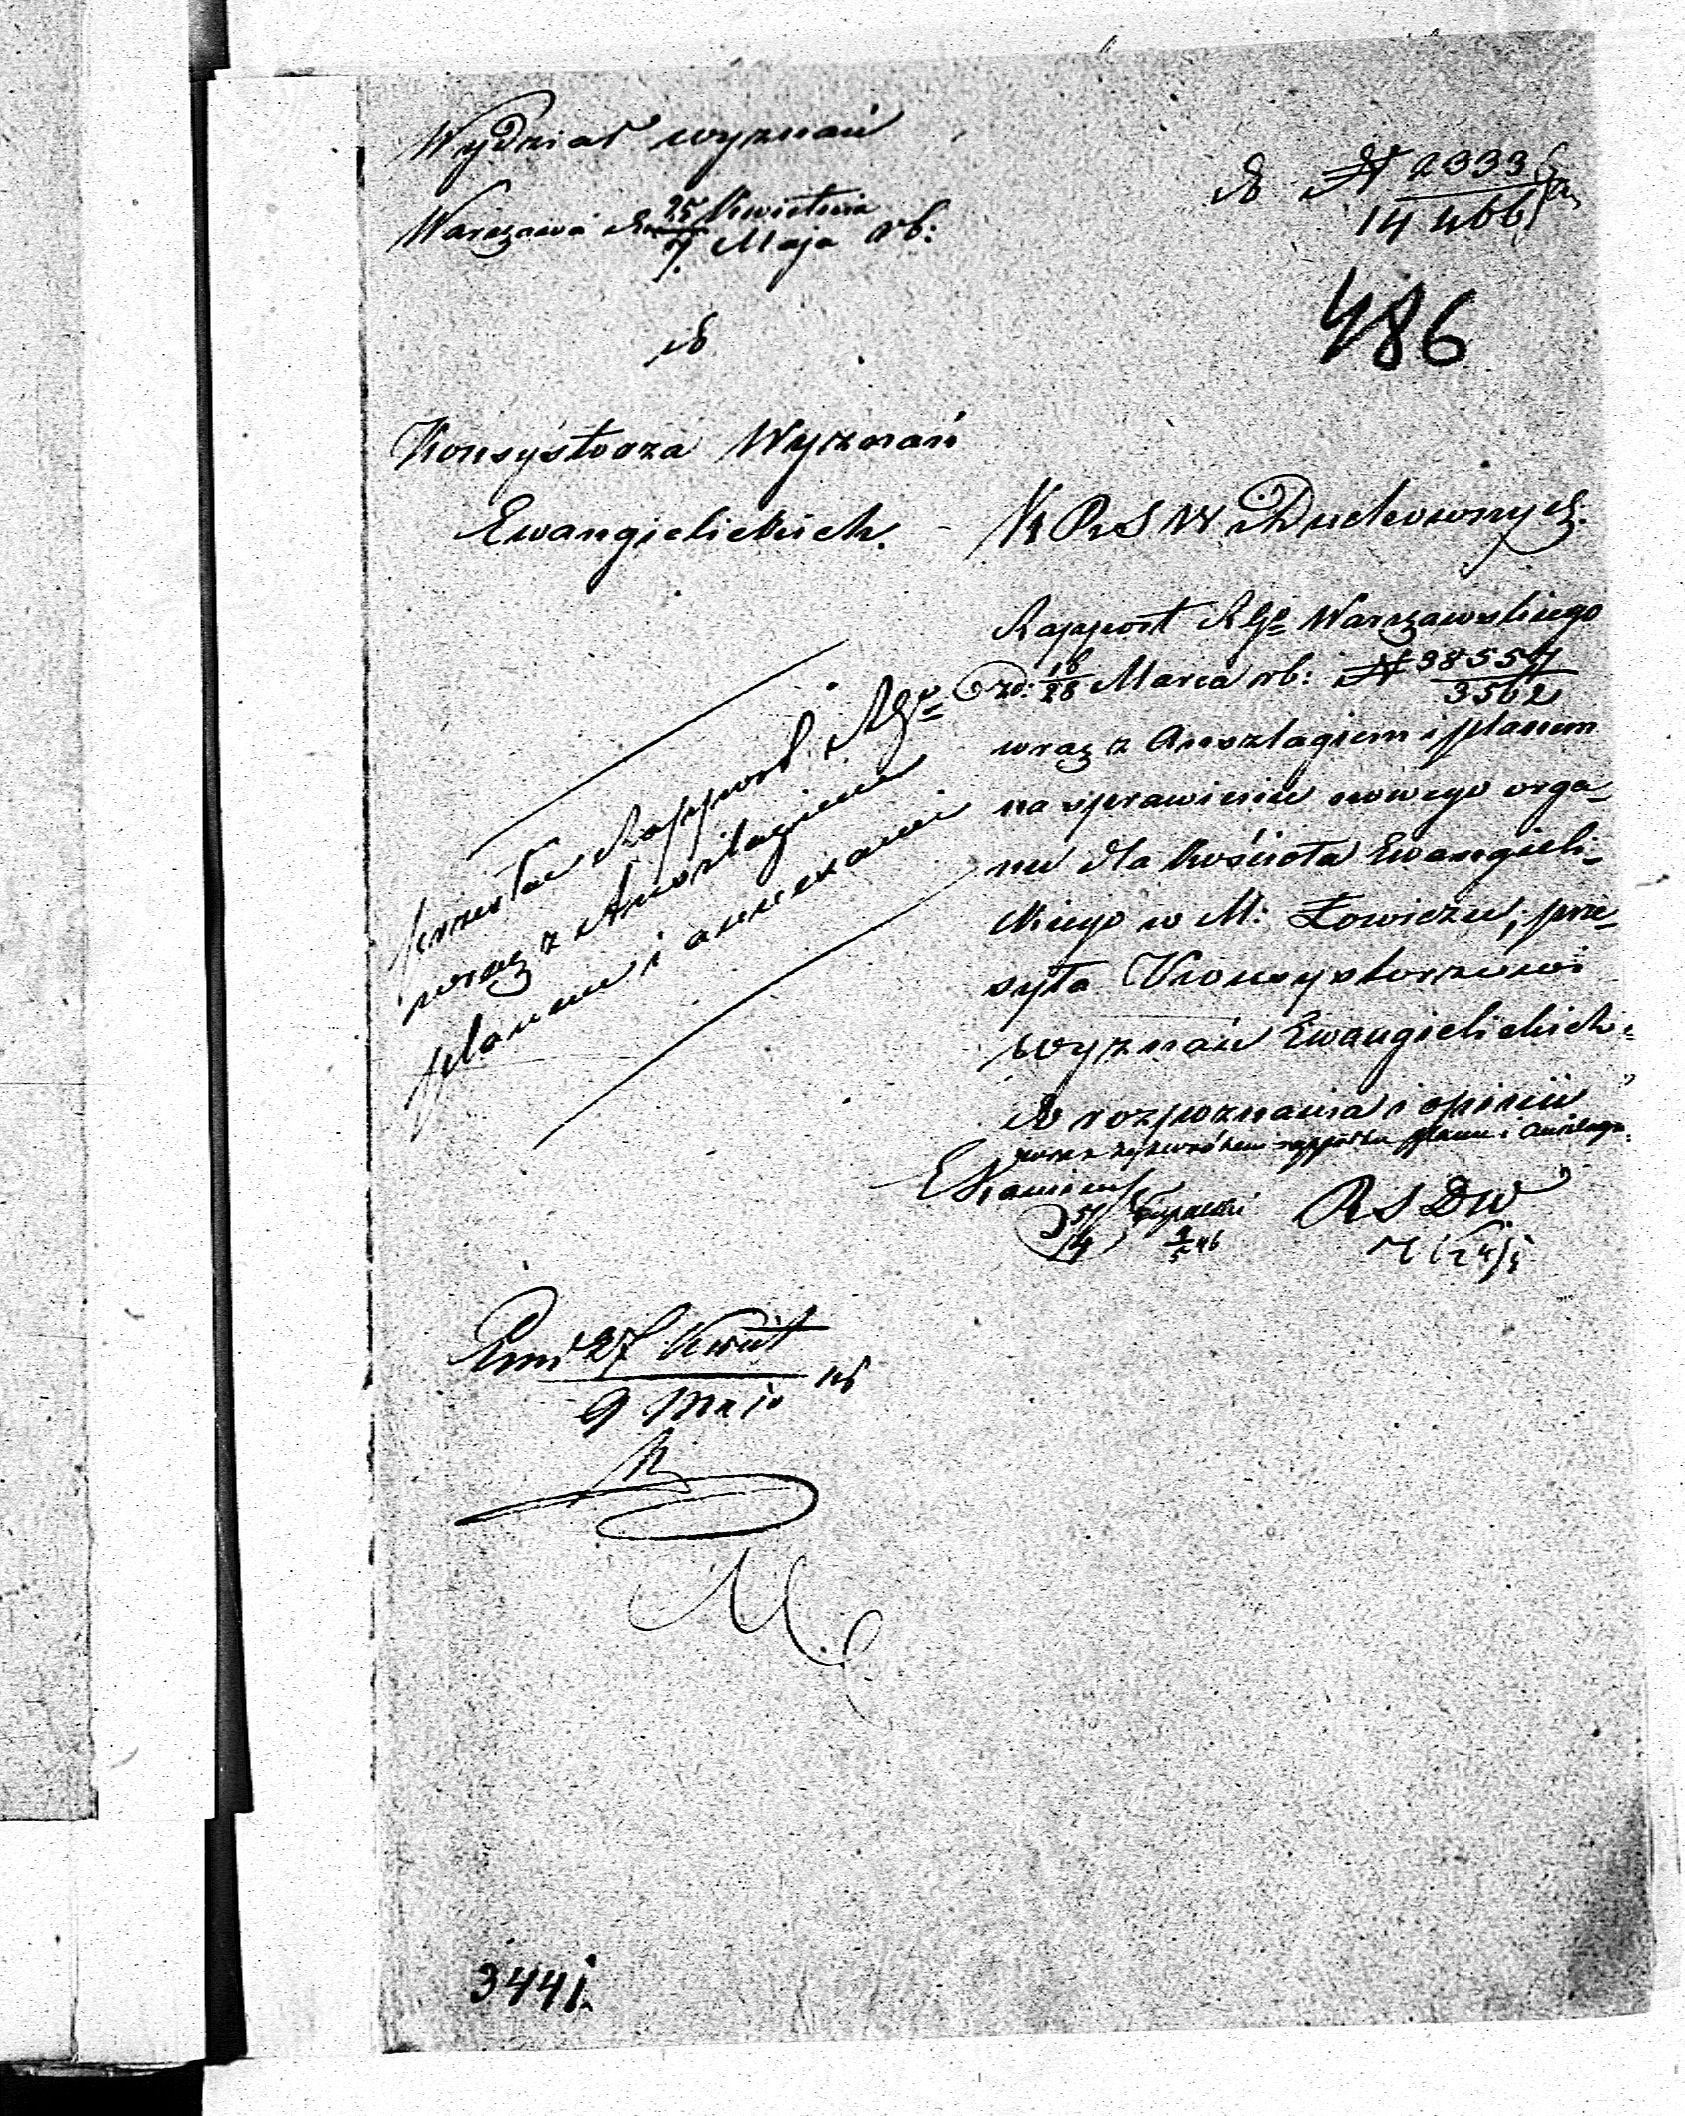 Wydział wyznań
Warszawa d. 25 Kwietnia
7 Maja rb:
do
Konsystorza Wyznań
Ewangielickich.
do № 2333
14466
486
K R S W i Duchownych.
Rapport RGo Warszawskiego
zd: 16/28 Marca rb: № 38557
3562
wraz z Anszlagiem i planem
na sprawienie nowego orga-
nu dla Kościoła Ewangieli-
ckiego w M: Łowiczu, prze-
syła Konsystorzowi
wyznań Ewangielickich
do rozpoznania i opinii
wraz z zwrotem rapportu planu i Anszlagu
R S D W
przesłać Rapport RGo
wraz z Anszlagiem
planem i annexami
Prm 27 Kwiet
9 Maja rb
3441.